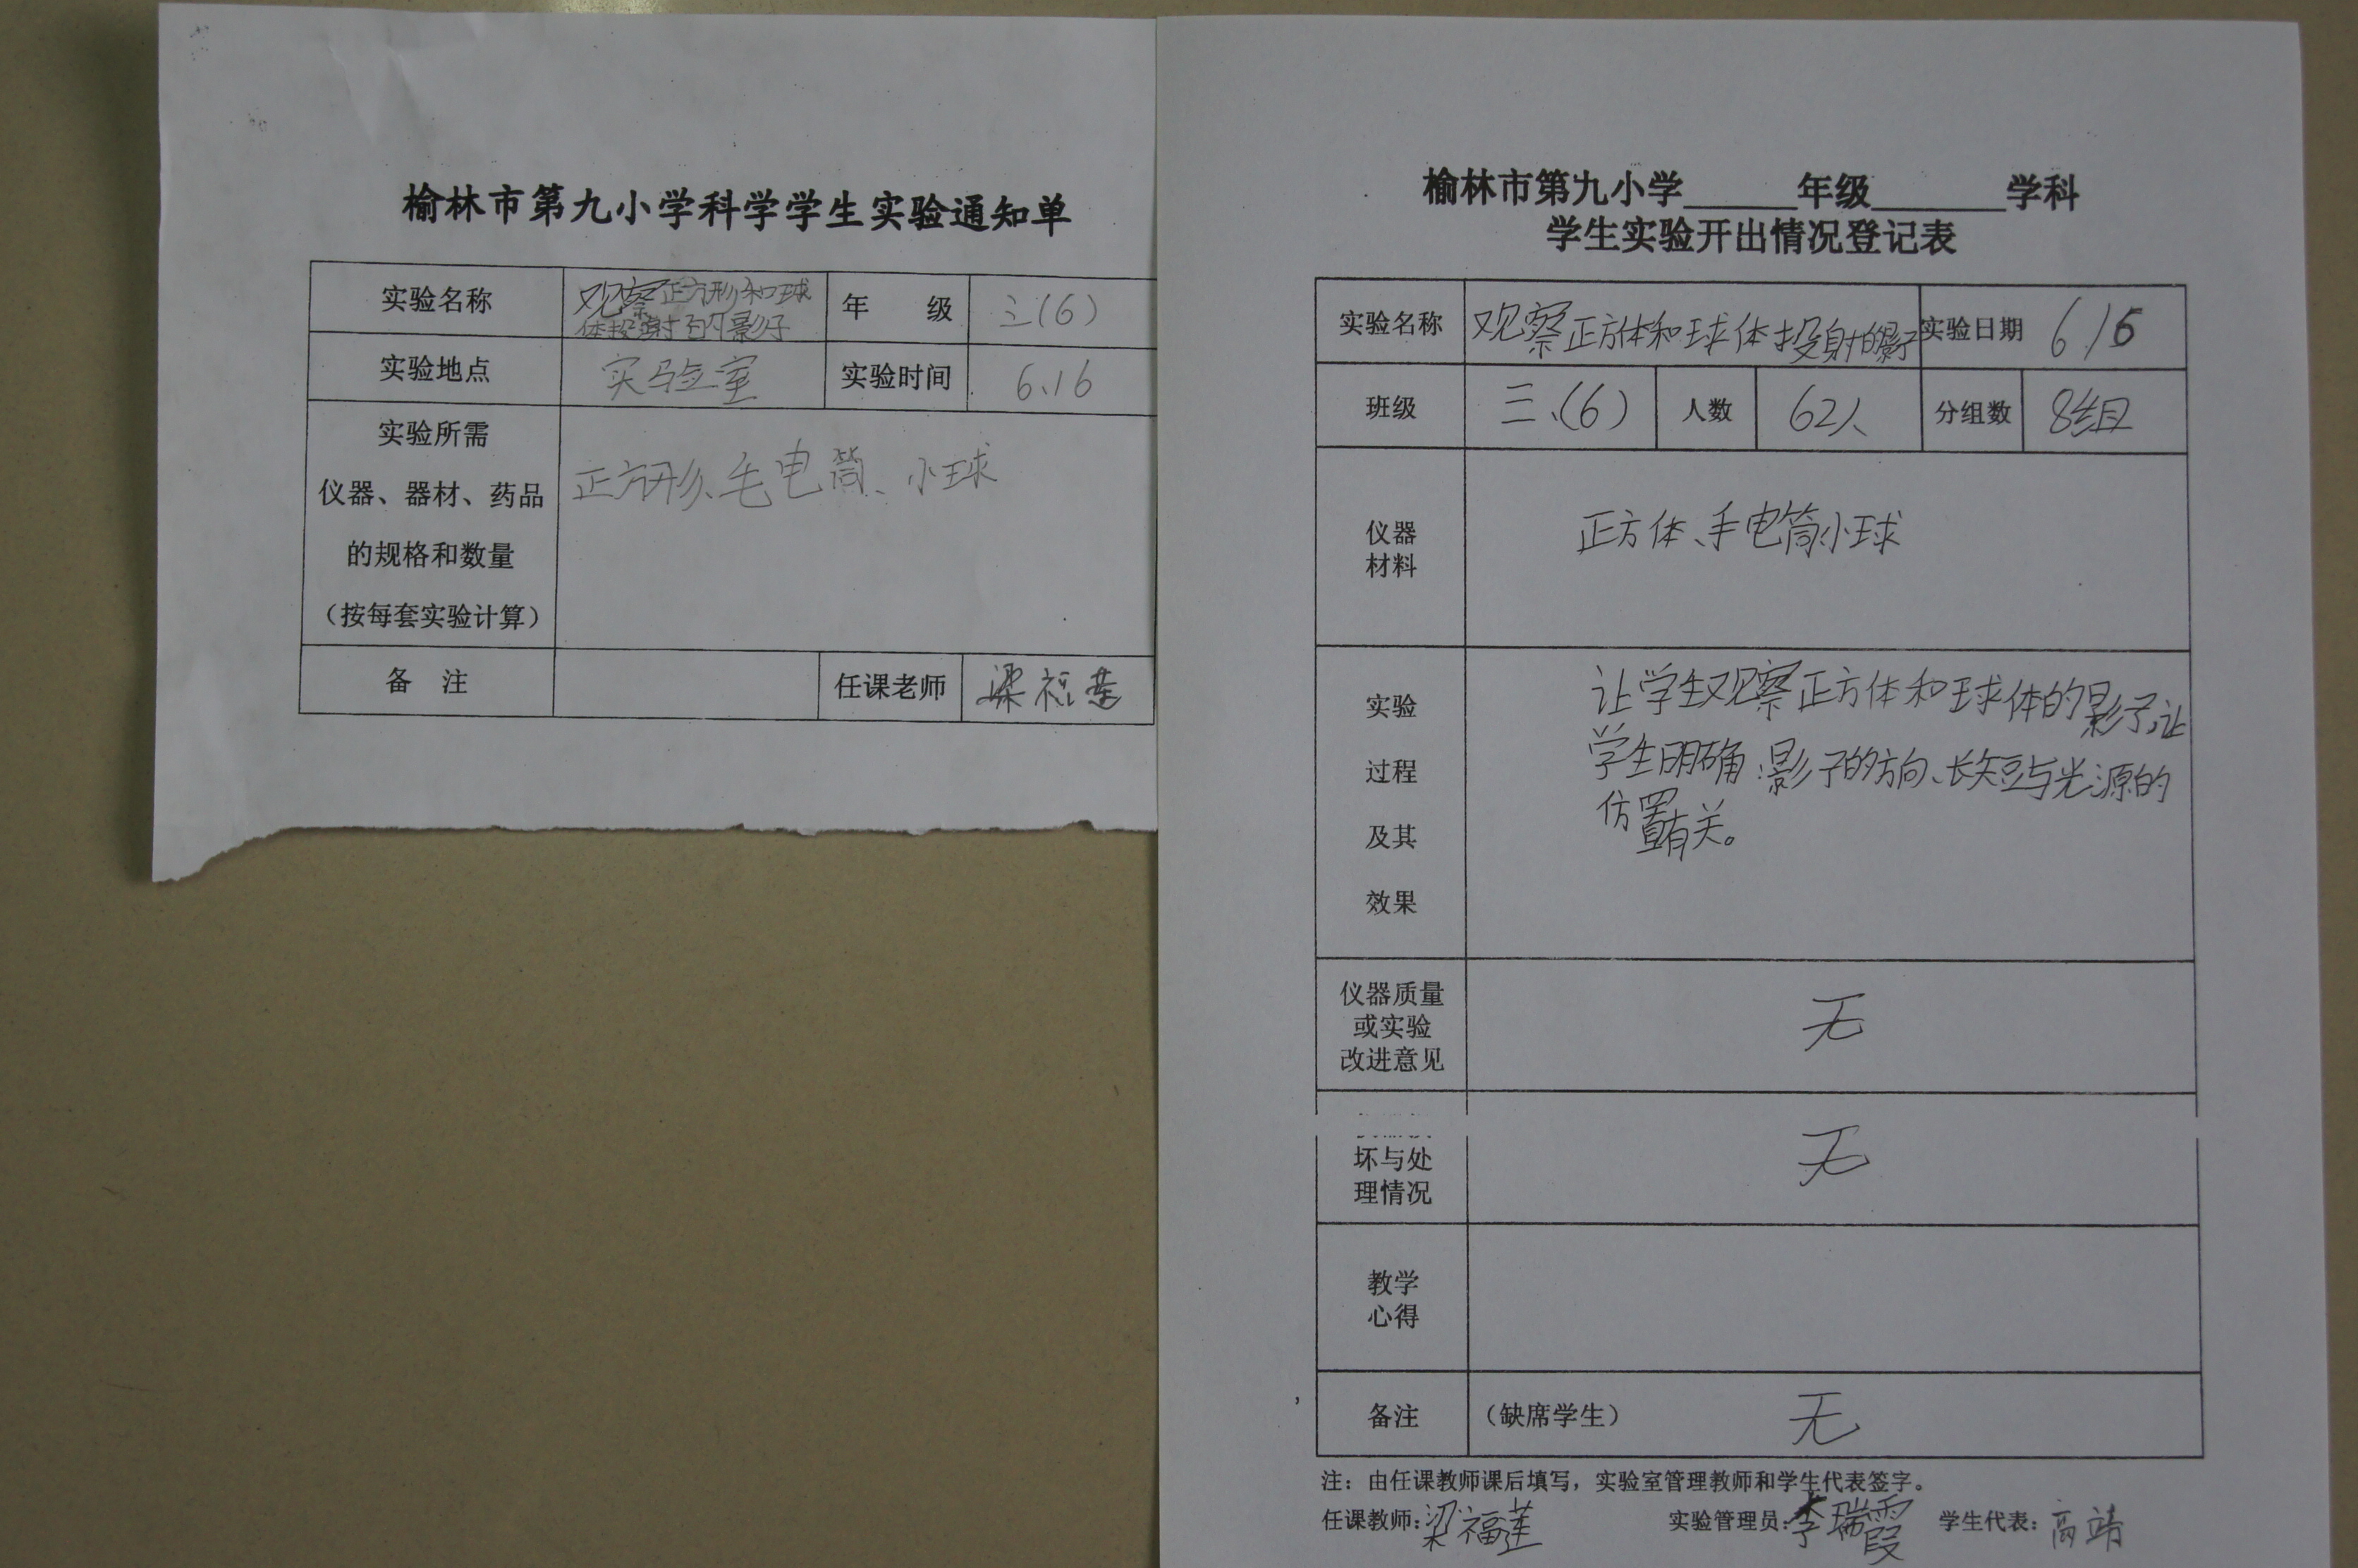 榆林市第九小学科学学生实验通知单
实验名称 观察正方形和球
体投射的影子
年 级 三(6)
实验地点 实验室 实验时间 6.16
实验所需
仪器、器材、药品
的规格和数量
(按每套实验计算)
正方形、毛电筒、小球
备 注 任课老师 梁福莲
榆林市第九小学______年级_______学科
学生实验开出情况登记表
实验名称 观察正方体和球体投射的影子 实验日期 6/6
班级 三、(6) 人数 62人 分组数 8组
仪器
材料
正方体、手电筒、小球
实验
过程
及其
效果
让学生观察正方体和球体的影子,让
学生明确:影子的方向、长短与光源的
位置有关。
仪器质量
或实验
改进意见
无
坏与处
理情况
无
教学
心得
备注 (缺席学生) 无
注:由任课教师课后填写,实验室管理教师和学生代表签字。
任课教师:梁福莲 实验管理员:李瑞霞 学生代表:高靖